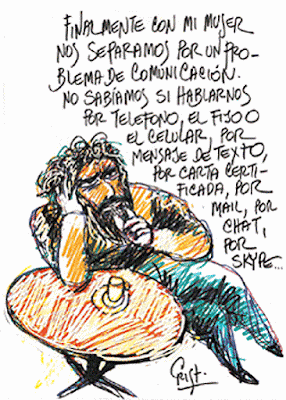 FINALMENTE CON MI MUJER
NOS SEPARAMOS POR UN PRO-
BLEMA DE COMUNICACIÓN.
NO SABÍAMOS SI HABLARNOS
POR TELEFONO, EL FIJO O
EL CELULAR, POR
MENSAJE DE TEXTO,
POR CARTA CERTI-
FICADA, POR
MAIL, POR
CHAT,
POR
SKYPE...
CRIST.